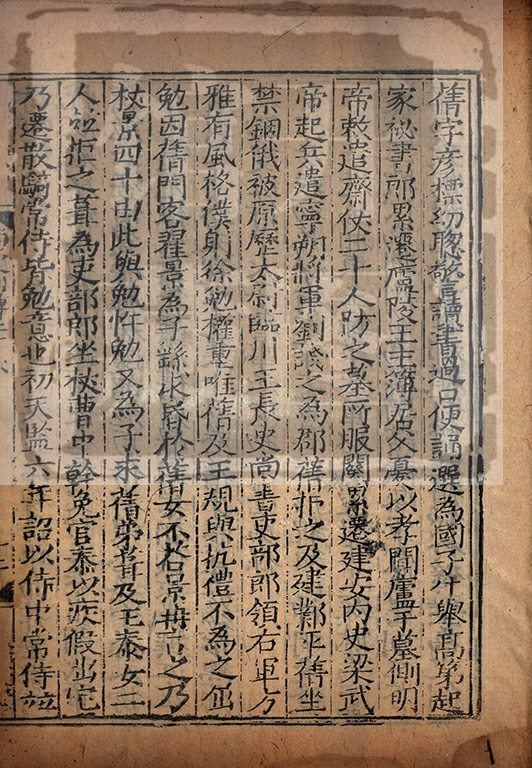 蒨字彦標幼聰敬言讀書過口便誦選為國子生舉髙第起
家秘書郎累遷廬陵王主簿居父憂以孝聞廬于墓側明
帝敕遣齋仗二十人防之墓所服闋累遷建安内史梁武
帝起兵遣寧朔將軍劉諓之為郡蒨拒之及建鄴平蒨坐
禁錮俄被原歷太尉臨川王長史尚書吏部郎領右軍方
雅有風格僕射徐勉權重唯蒨及王規與抗禮不為之屈
勉因蒨門客翟景為子繇求昏於蒨女不答景再言之乃
杖景四十由此與勉忤勉又為子求蒨弟葺及王泰女二
人並拒之葺為吏部郎坐杖曹中幹免官泰以疾假出宅
乃遷散騎常侍皆勉意也初天監六年詔以侍中常侍並